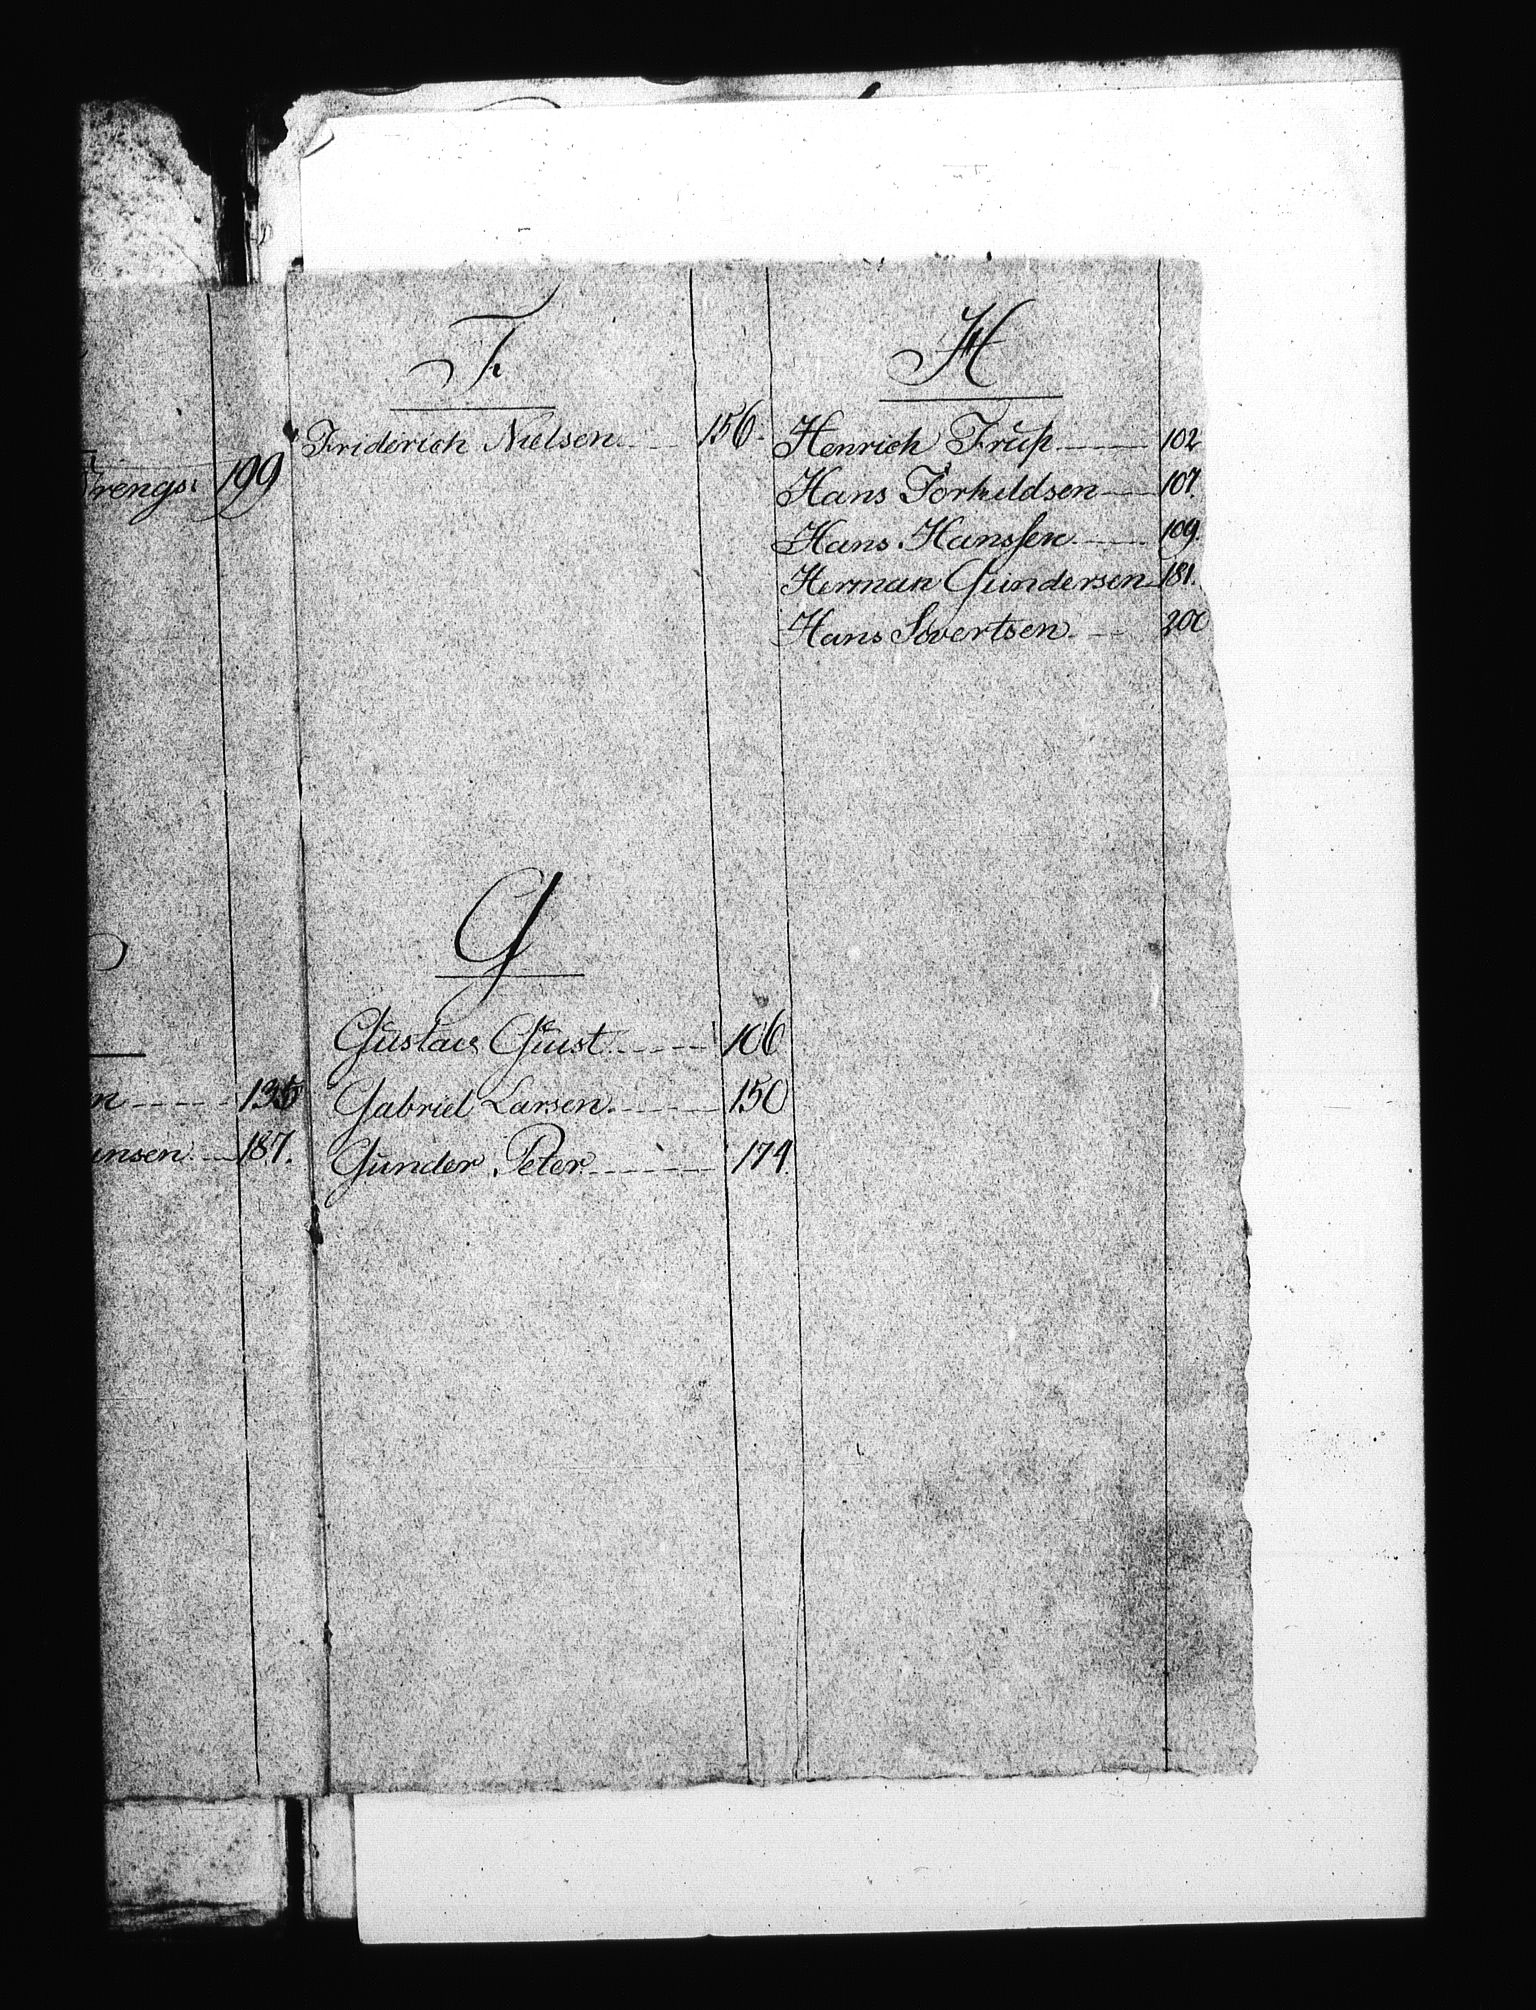 199
135
187.
F
Friderich Nielsen 156.
G
Gustav Quist 106
Gabriel Larsen 150
Gunder Peter 174.
H
Henrich Trup 102
Hans Torkildsen 107.
Hans Hanssen 109.
Herman Gundersen 181.
Hans Sivertsen 200